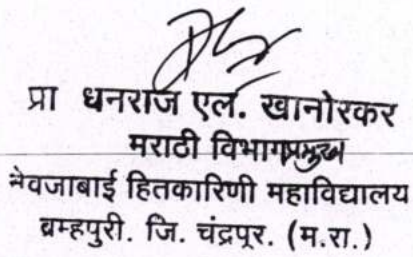 प्रा धनराज एल. खानोरकर
मराठी विभागप्रमुख
नेवजाबाई हितकारिणी महाविद्यालय
ब्रम्हपुरी. जि. चंद्रपूर. (म.रा.)